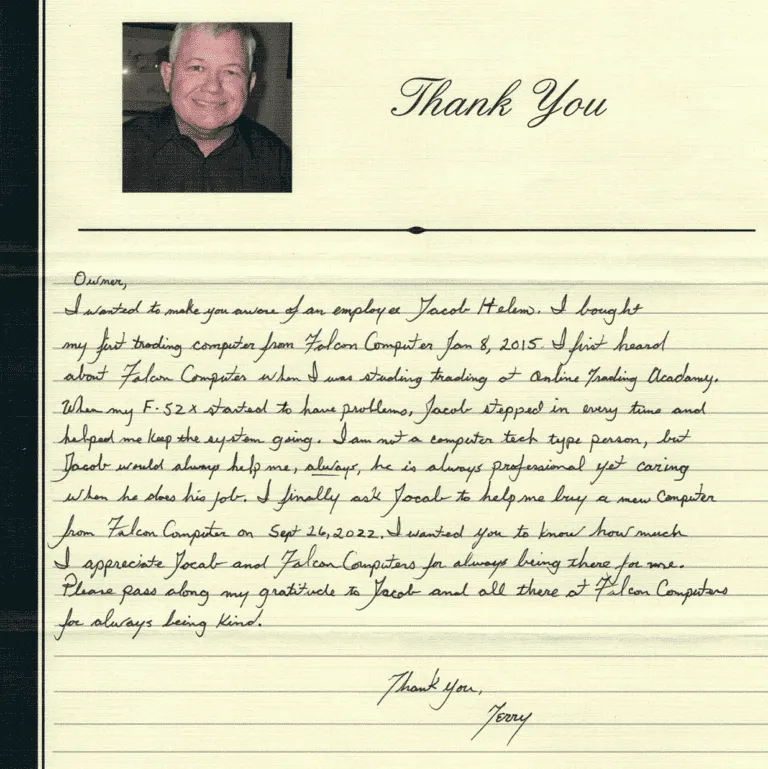 Thank You
Owner,
I wanted to make you aware of an employee Jacob Helem. I bought
my first trading computer from Falcon Computer Jan 8, 2015. I first heard
about Falcon Computer when I was studing trading at Online Trading Acadamy.
When my F-52x started to have problems, Jacob stepped in every time and
helped me keep the system going. I am not a computer tech type person, but
Jacob would always help me, always, he is always professional yet caring
when he does his job. I finally ask Jocab to help me buy a new computer
from Falcon Computer on Sept 26, 2022. I wanted you to know how much
I appreciate Jocab and Falcon Computers for always being there for me.
Please pass along my gratitude to Jacob and all there at Falcon Computers
for always being kind.
Thank You,
Terry